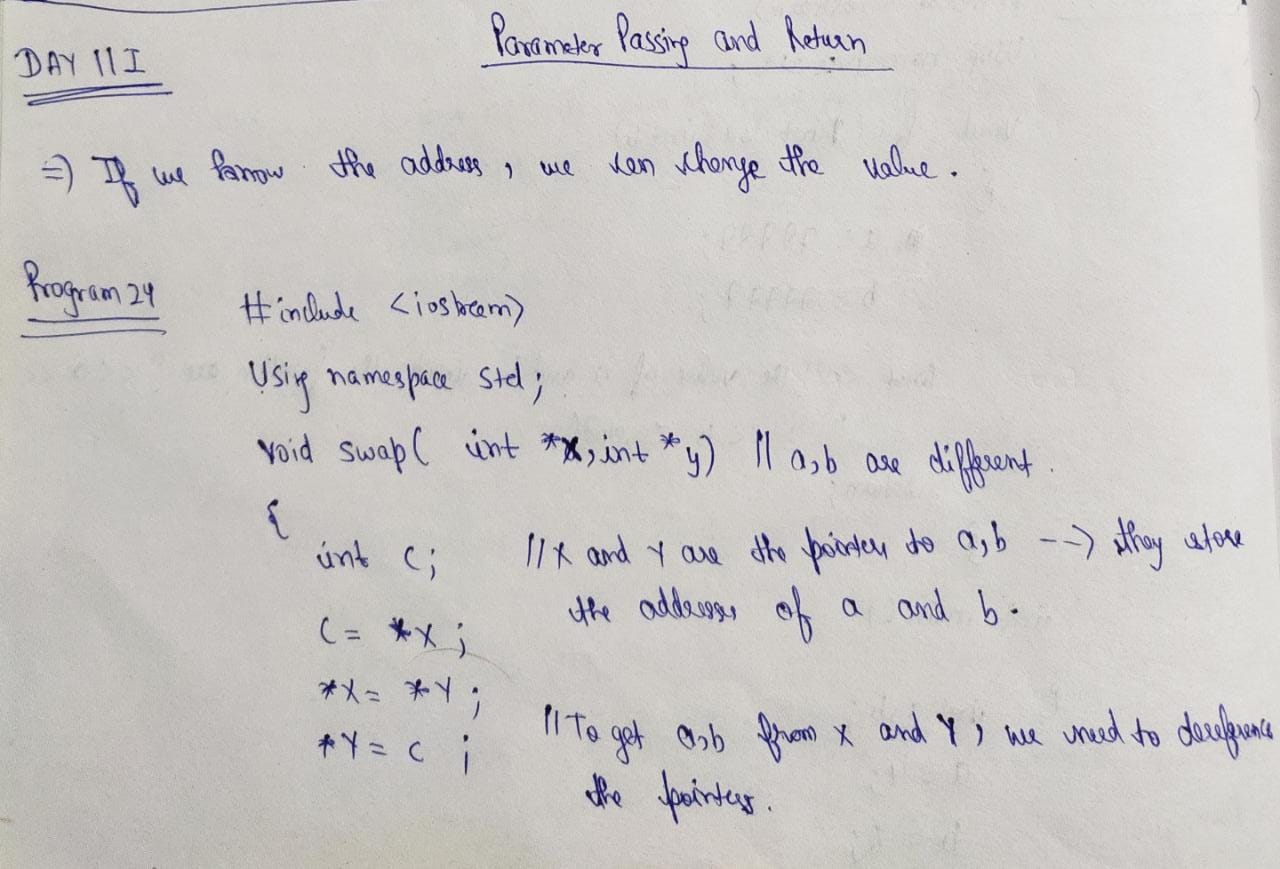 Parameter Passing and Return
DAY 11 I
=) If we know the address, we can change the value.
Program 24
#include <iostream>
Using namespace std;
void swap( int *x, int *y) // a,b are different.
{
int c; // X and Y are the pointers to a,b --> they store
the addresses of a and b.
C = *X;
*X = *Y;
*Y = c ; // To get a,b from X and Y, we need to dereference
the pointers.